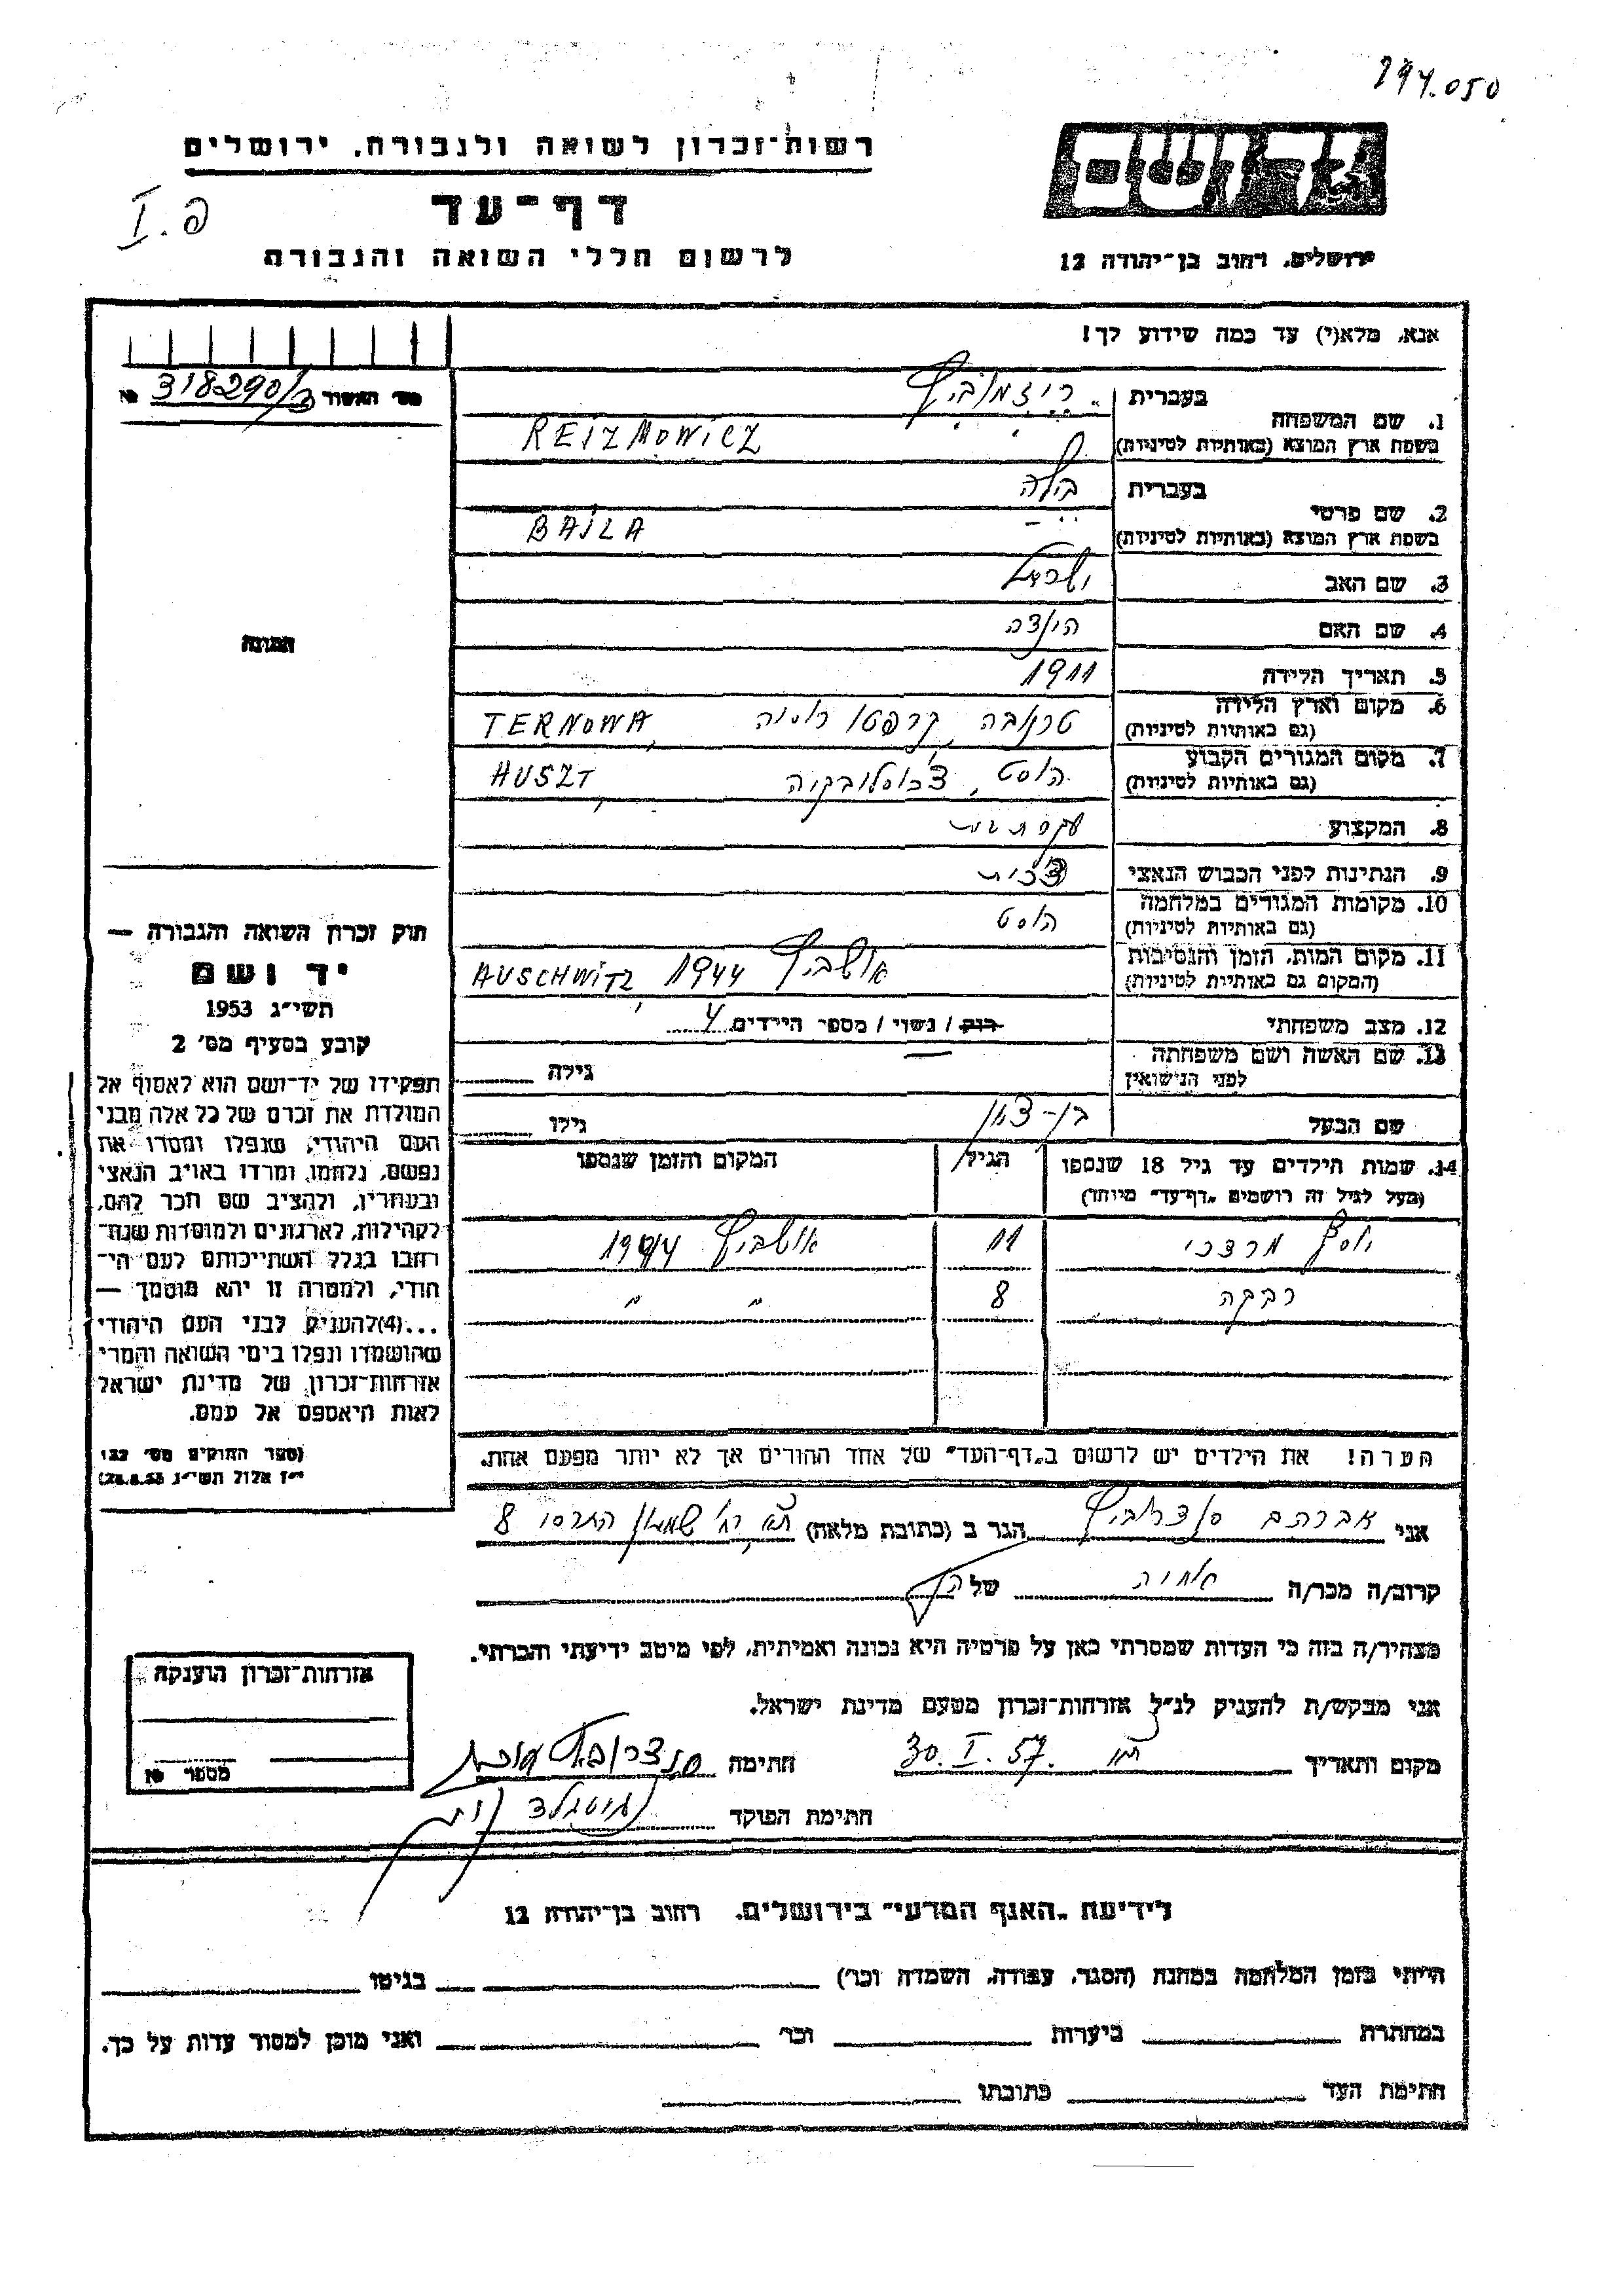 294.050
רשות-זכרון לשואה ולגבורה, ירושלים
יד ושם
דף-עד
I.פ
לרשום חללי השואה והגבורה
ירושלים, רחוב בן-יהודה 12
אנא, מלא(י) עד כמה שידוע לך!
מס' האשור № 318290/3
1. שם המשפחה בעברית ריזמוביץ
בשפת ארץ המוצא (באותיות לטיניות) REIZMOWICZ
2. שם פרטי בעברית בילה
בשפת ארץ המוצא (באותיות לטיניות) BAILA
3. שם האב ישראל
4. שם האם הינדה
5. תאריך הלידה 1911
6. מקום וארץ הלידה (גם באותיות לטיניות) טרנובה, קרפטו רוסיה TERNOWA,
7. מקום המגורים הקבוע (גם באותיות לטיניות) הוסט, צ'כוסלובקיה HUSZT,
8. המקצוע עקרת בית
9. הנתינות לפני הכבוש הנאצי צ'כית
10. מקומות המגורים במלחמה (גם באותיות לטיניות) הוסט
11. מקום המות, הזמן והנסיבות (המקום גם באותיות לטיניות) אושביץ 1944 AUSCHWITZ,
12. מצב משפחתי רוק / נשוי / מספר הילדים 4
13. שם האשה ושם משפחתה לפני הנישואין גילה
שם הבעל בן-ציון גילו
14. שמות הילדים עד גיל 18 שנספו (מעל לגיל זה רושמים "דף-עד" מיוחד) הגיל המקום והזמן שנספו
יוסף מרדכי 11 אושביץ 1944
רבקה 8 " "
הערה! את הילדים יש לרשום ב"דף-העד" של אחד ההורים אך לא יותר מפעם אחת.
התמונה
חוק זכרון השואה והגבורה —
יד ושם
תשי"ג 1953
קובע בסעיף מס' 2
תפקידו של יד-ושם הוא לאסוף אל
המולדת את זכרם של כל אלה מבני
העם היהודי, שנפלו ומסרו את
נפשם, נלחמו, ומרדו באויב הנאצי
ובעוזריו, ולהציב שם וזכר להם,
לקהילות, לארגונים ולמוסדות שנח-
רבו בגלל השתייכותם לעם הי-
הודי, ולמטרה זו יהא מוסמך —
...(4)להעניק לבני העם היהודי
שהושמדו ונפלו בימי השואה והמרי
אזרחות-זכרון של מדינת ישראל
לאות היאספם אל עמם.
(ספר החוקים מס' 132
י"ז אלול תשי"ג 28.8.53)
אני אברהם סנדרוביץ הגר ב (כתובת מלאה) ת"א, רח' שמעון התרסי 8
קרוב/ה מכר/ה אחיה של הנ"ל
מצהיר/ה בזה כי העדות שמסרתי כאן על פרטיה היא נכונה ואמיתית, לפי מיטב ידיעתי והכרתי.
אני מבקש/ת להעניק לנ"ל אזרחות-זכרון מטעם מדינת ישראל.
מקום ותאריך ת"א 30.I.57. חתימה
חתימת הפוקד
אזרחות-זכרון הוענקה
מספר №
לידיעת "האגף המדעי" בירושלים, רחוב בן-יהודה 12
הייתי בזמן המלחמה במחנה (הסגר, עבודה, השמדה וכו') בגיטו
במחתרת ביערות וכו' ואני מוכן למסור עדות על כך.
חתימת העד כתובתו